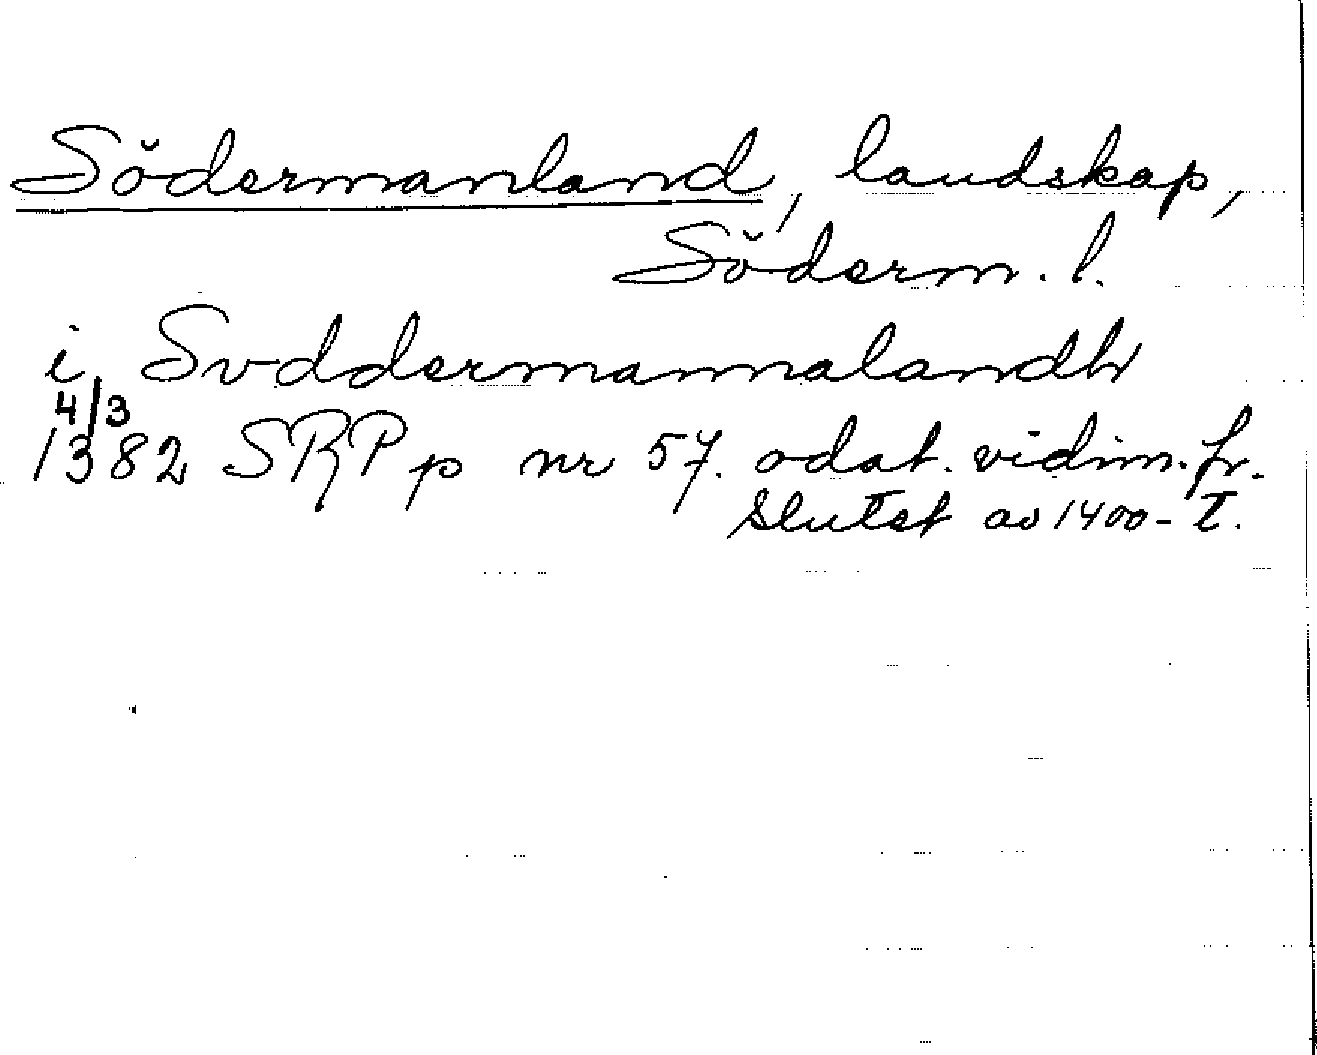 Södermanland, landskap,
Söderm. l.
i Svddermannalandh
4/3
1382 SRP p nr 57. odat. vidim. fr.
slutet av 1400-t.